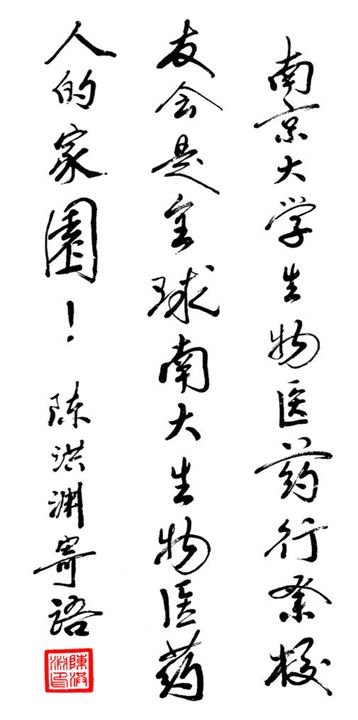 南京大学生物医药行业校
友会是全球南大生物医药
人的家園！
陈洪渊寄语
陳洪淵印